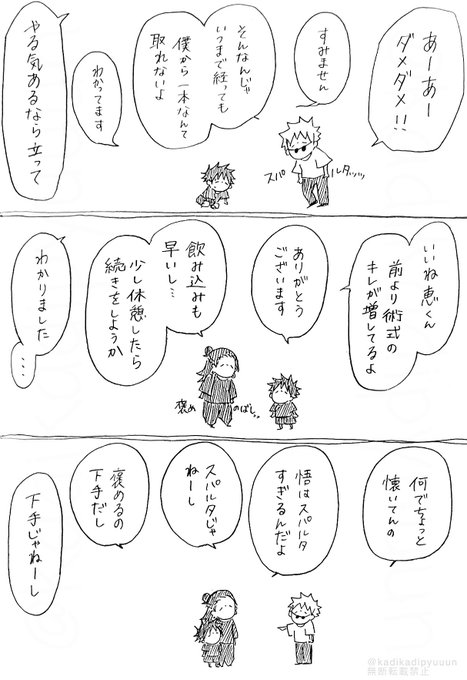 あーあー
ダメダメ!!
すみません
そんなんじゃ
いつまで経っても
僕から一本なんて
取れないよ
わかってます
やる気あるなら立って
スパルタッッ
いいね恵くん
前より術式の
キレが増してるよ
ありがとう
ございます
飲み込みも
早いし…
少し休憩したら
続きをしようか
わかりました
…
褒めのばしッ
何でちょっと
懐いてんの
悟はスパルタ
すぎるんだよ
スパルタじゃ
ねーし
褒めるの
下手だし
下手じゃねーし
@kadikadipyuuun
無断転載禁止